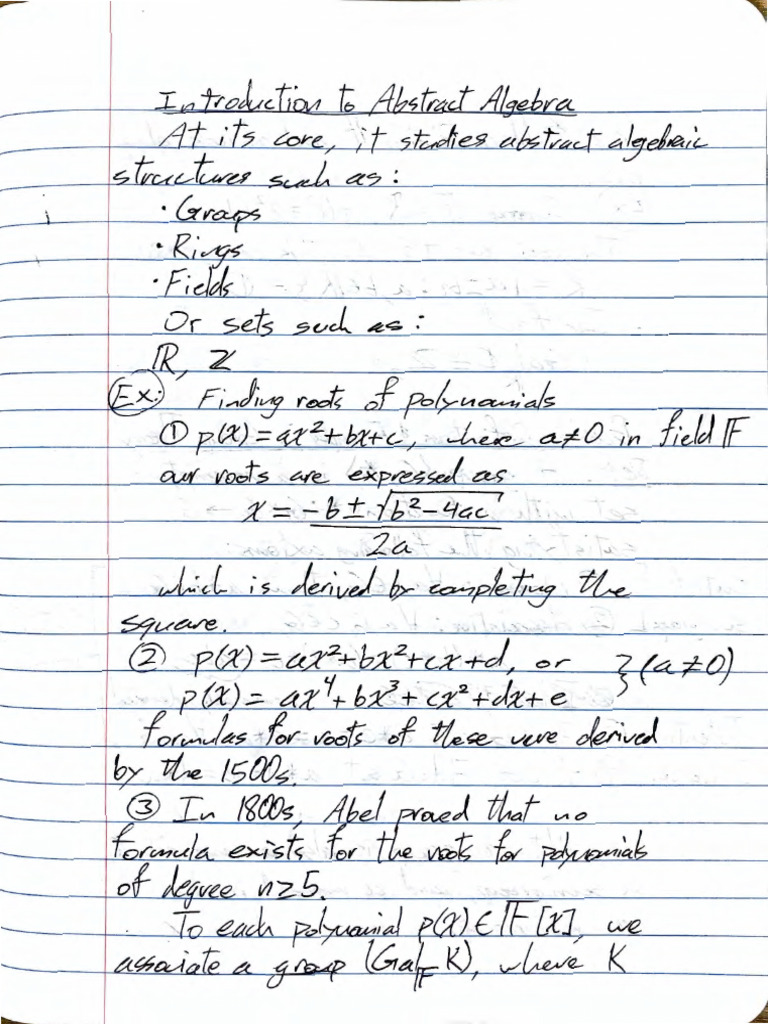 Introduction to Abstract Algebra
At its core, it studies abstract algebraic
structures such as:
· Groups
· Rings
· Fields
Or sets such as:
ℝ, ℤ
Ex: Finding roots of polynomials
① p(x) = ax²+bx+c, where a≠0 in field 𝔽
our roots are expressed as
x = (-b ± √(b²-4ac)) / 2a
which is derived by completing the
square.
② p(x) = ax²+bx²+cx+d, or } (a≠0)
p(x) = ax⁴+bx³+cx²+dx+e
formulas for roots of these were derived
by the 1500s.
③ In 1800s, Abel proved that no
formula exists for the roots for polynomials
of degree n≥5.
To each polynomial p(x) ∈ 𝔽[x], we
associate a group (Gal_𝔽 K), where K